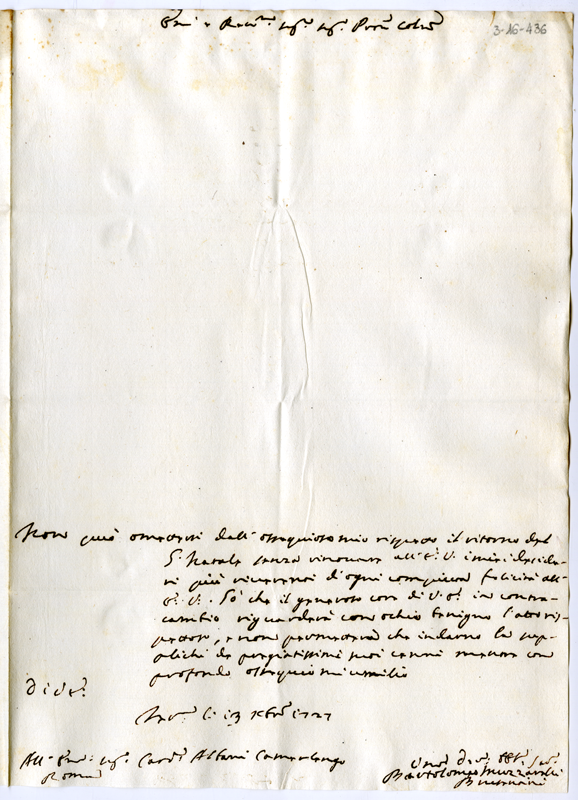 Em.o e Reu.mo Sig.r Sig.r Pron Col.mo
3-16-436
Non può omettersi dall'ossequioso mio rispetto il ritorno del
S. Natale senza rinouare all'E. V. i miei deside-
ri più riuerenti d'ogni compiuta felicità all'
E. V. Sò che il generoso cor di V. E. in contra-
cambio riguarderà con ochio benigno l'atto ris-
pettoso, e non permetterà che indarno la sup-
plichi de pregiatissimi suoi cenni mentre con
profondo ossequio mi umilio
Di V. E.
li 13 Xbre 1727
All' Em.o Sig.r Card. Albani Camarlengo
Roma
Um.o Du.o Obb. Ser.
Bartolomeo